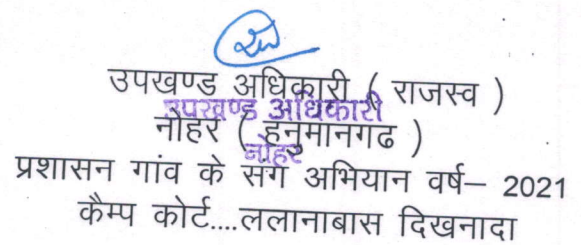 उपखण्ड अधिकारी ( राजस्व )
उपखण्ड अधिकारी
नोहर ( हनुमानगढ )
नोहर
प्रशासन गांव के संग अभियान वर्ष– 2021
कैम्प कोर्ट....ललानाबास दिखनादा